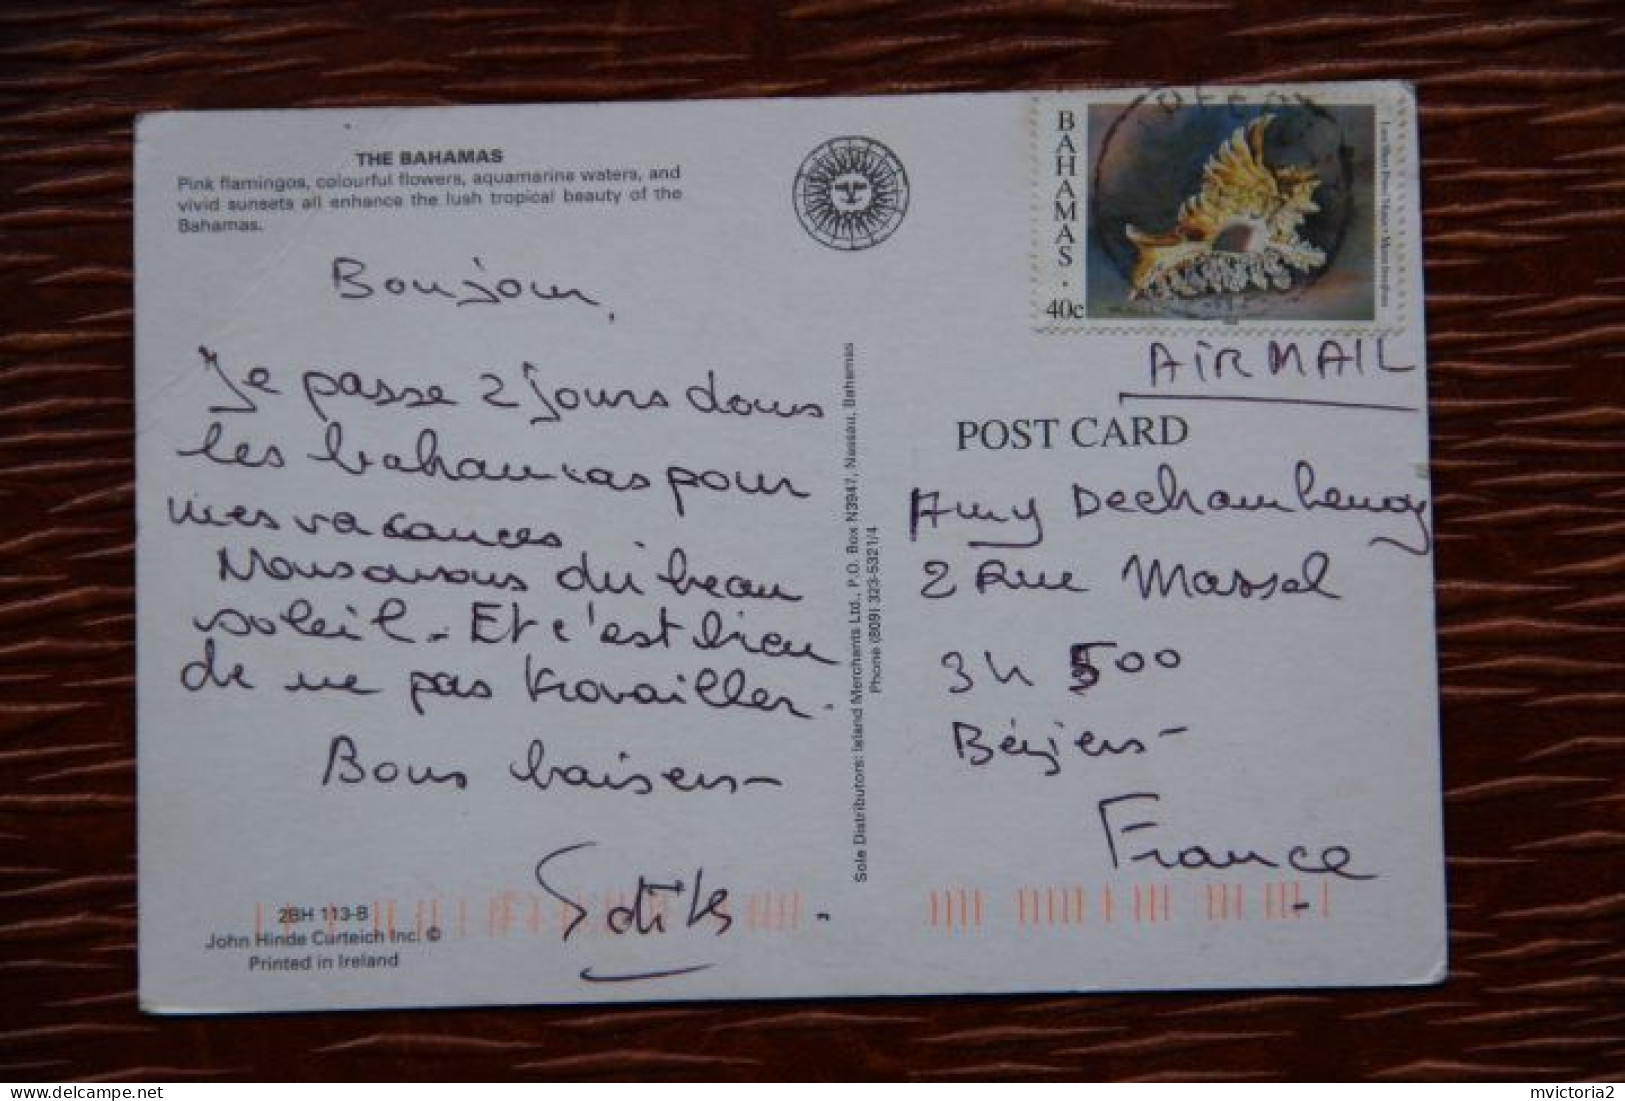 THE BAHAMAS
Pink flamingos, colourful flowers, aquamarine waters, and
vivid sunsets all enhance the lush tropical beauty of the
Bahamas.
Bonjour,
Je passe 2 jours dans
les bahamas pour
mes vacances
Nous avons du beau
soleil. Et c'est bien
de ne pas travailler.
Bons baisers -
2BH 113-B
John Hinde Curteich Inc. ©
Printed in Ireland
Sole Distributors: Island Merchants Ltd., P.O. Box N3947, Nassau, Bahamas
Phone (809) 323-5321/4
BAHAMAS
40c
AIR MAIL
POST CARD
Amy
2 Rue Massol
34 500
Béziers -
France
mvictoria2